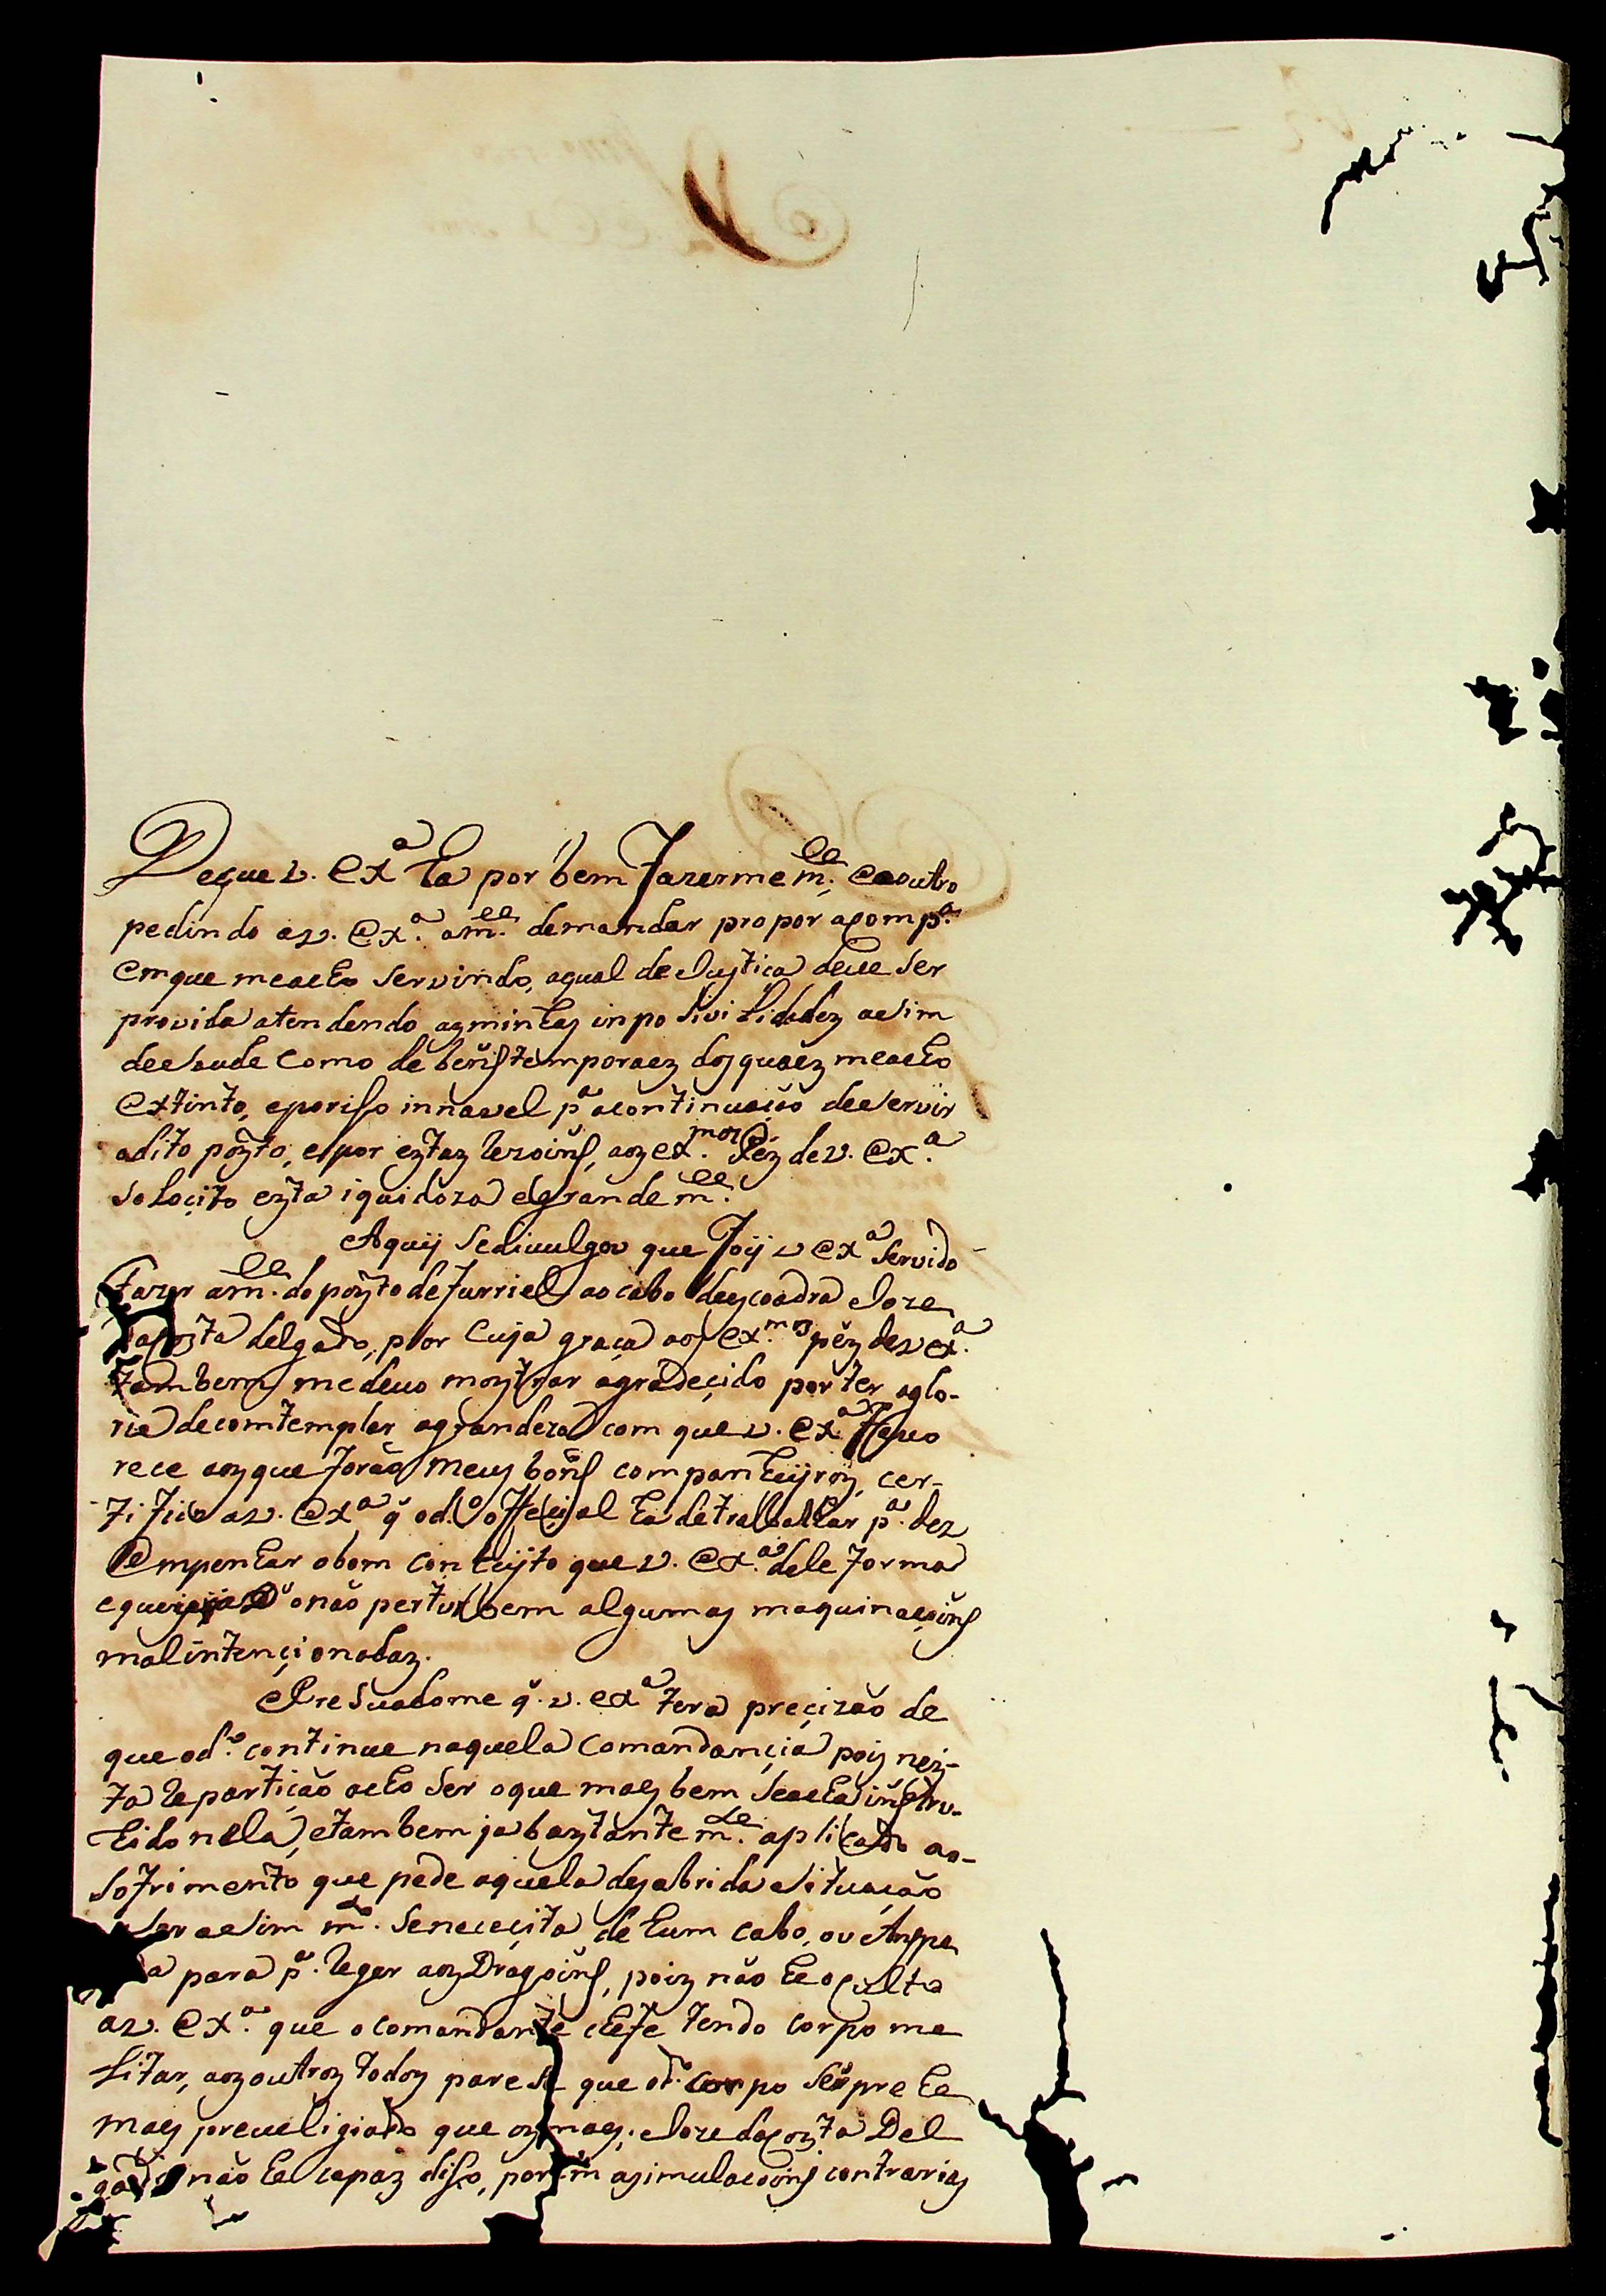 De que v. Exª ha por bem fazerme m.ce e aoutro
pedindo a v. Exª. a m.ce de mandar propor a comp.ª
em que me acho servindo, a qual de Justica deve ser
provida atendendo as minhas inposivilidades asim
de saude como de beñs temporaes dos quaes me acho
extinto, e por iso innavel p.ª a continuação de servir
a dito posto, e por estas rezoiñs, aos ex.mos Péz de v. Ex.ª
solocito esta iquidoza e grande m.ce
Aquij se divulgou que foij v Exª servido
fazer a m.ce do posto de furriel ao cabo de escoadra Joze
da costa delgado, por cuja graça aos ex.mos péz de v exª.
tambem me devo mostrar agradecido por ter a glo-
ria de comtemplar a grandeza com que v. Exª favo
rece aos que forão meus bons companheijros, cer-
tifico a v. Exª q̃ o d.o offecijal ha de trabalhar p.ª dez
empenhar o bom conheijto que v. Exª. dele forma
e que o não perturbem algumas maquinacoiñs
mal intencionadas.
Presuadome q̃. v. exª tera precizão de
que o d.o continue naquela comandancia pois nes-
ta repartição acho ser o que maes bem se acha iñstru-
hido nela, e tambem ja bastante m.te aplicado ao
sofrimento que pede aquela desabrida situação
ser asim m.to se nececita de hum cabo, ou Anspe
a para p.ª reger aos Dragoiñs, pois não he oculto
a v. Exª. que o comandante chefe tendo corpo me
litar, aos outros todos parese que o d.o corpo sẽpre he
maes preveligiado que os maes; Joze da costa Del
gado não he capaz diso, porem as imulacoiñs contrarias